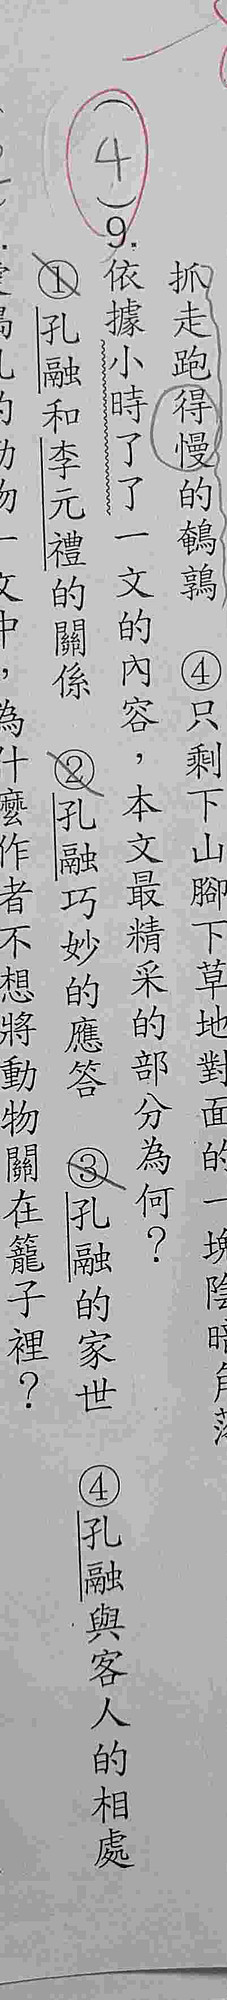 抓走跑得慢的鵪鶉　④只剩下山腳下草地對面的一塊陰暗角落
（4）9.依據小時了了一文的內容，本文最精采的部分為何？
①孔融和李元禮的關係　②孔融巧妙的應答　③孔融的家世　④孔融與客人的相處
的動物一文中，為什麼作者不想將動物關在籠子裡？